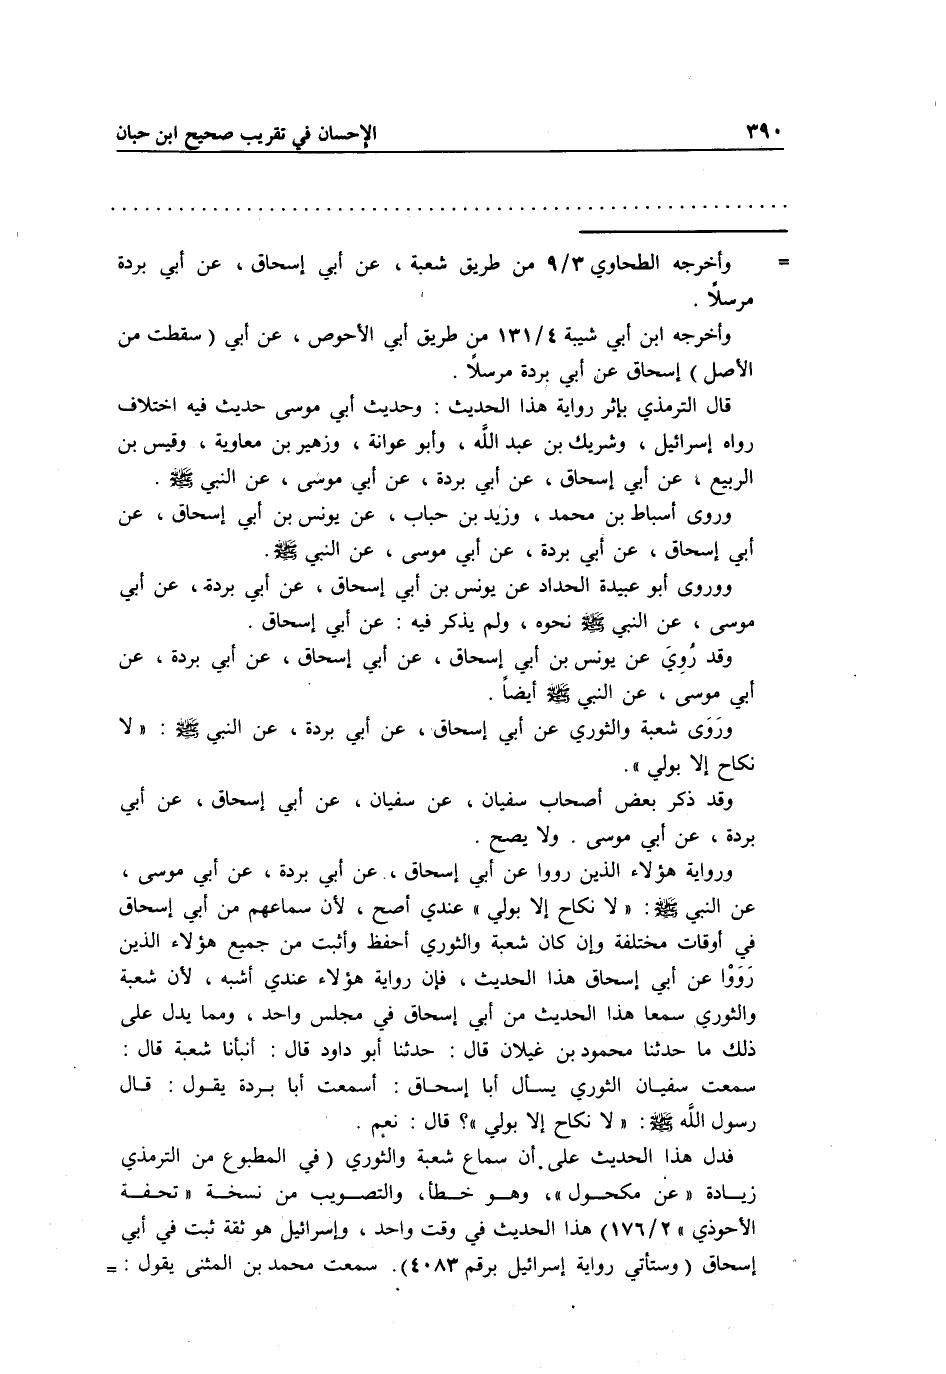 ٣٩٠ الإحسان في تقريب صحيح ابن حبان
= وأخرجه الطحاوي ٩/٣ من طريق شعبة ، عن أبي إسحاق ، عن أبي بردة
مرسلاً .
وأخرجه ابن أبي شيبة ١٣١/٤ من طريق أبي الأحوص ، عن أبي ( سقطت من
الأصل ) إسحاق عن أبي بردة مرسلاً .
قال الترمذي بإثر رواية هذا الحديث : وحديث أبي موسى حديث فيه اختلاف
رواه إسرائيل ، وشريك بن عبد اللَّه ، وأبو عوانة ، وزهير بن معاوية ، وقيس بن
الربيع ، عن أبي إسحاق ، عن أبي بردة ، عن أبي موسى ، عن النبي ﷺ .
وروى أسباط بن محمد ، وزيد بن حباب ، عن يونس بن أبي إسحاق ، عن
أبي إسحاق ، عن أبي بردة ، عن أبي موسى ، عن النبي ﷺ .
ووروى أبو عبيدة الحداد عن يونس بن أبي إسحاق ، عن أبي بردة ، عن أبي
موسى ، عن النبي ﷺ نحوه ، ولم يذكر فيه : عن أبي إسحاق .
وقد رُوِيَ عن يونس بن أبي إسحاق ، عن أبي إسحاق ، عن أبي بردة ، عن
أبي موسى ، عن النبي ﷺ أيضاً .
ورَوَى شعبة والثوري عن أبي إسحاق ، عن أبي بردة ، عن النبي ﷺ : « لا
نكاح إلا بولي ».
وقد ذكر بعض أصحاب سفيان ، عن سفيان ، عن أبي إسحاق ، عن أبي
بردة ، عن أبي موسى . ولا يصح .
ورواية هؤلاء الذين رووا عن أبي إسحاق ، عن أبي بردة ، عن أبي موسى ،
عن النبي ﷺ : « لا نكاح إلا بولي » عندي أصح ، لأن سماعهم من أبي إسحاق
في أوقات مختلفة وإن كان شعبة والثوري أحفظ وأثبت من جميع هؤلاء الذين
رَوَوْا عن أبي إسحاق هذا الحديث ، فإن رواية هؤلاء عندي أشبه ، لأن شعبة
والثوري سمعا هذا الحديث من أبي إسحاق في مجلس واحد ، ومما يدل على
ذلك ما حدثنا محمود بن غيلان قال : حدثنا أبو داود قال : أنبأنا شعبة قال :
سمعت سفيان الثوري يسأل أبا إسحاق : أسمعت أبا بردة يقول : قال
رسول اللَّه ﷺ : « لا نكاح إلا بولي »؟ قال : نعم .
فدل هذا الحديث على أن سماع شعبة والثوري ( في المطبوع من الترمذي
زيادة « عن مكحول »، وهو خطأ، والتصويب من نسخة « تحفة
الأحوذي » ١٧٦/٢) هذا الحديث في وقت واحد ، وإسرائيل هو ثقة ثبت في أبي
إسحاق ( وستأتي رواية إسرائيل برقم ٤٠٨٣). سمعت محمد بن المثنى يقول : =